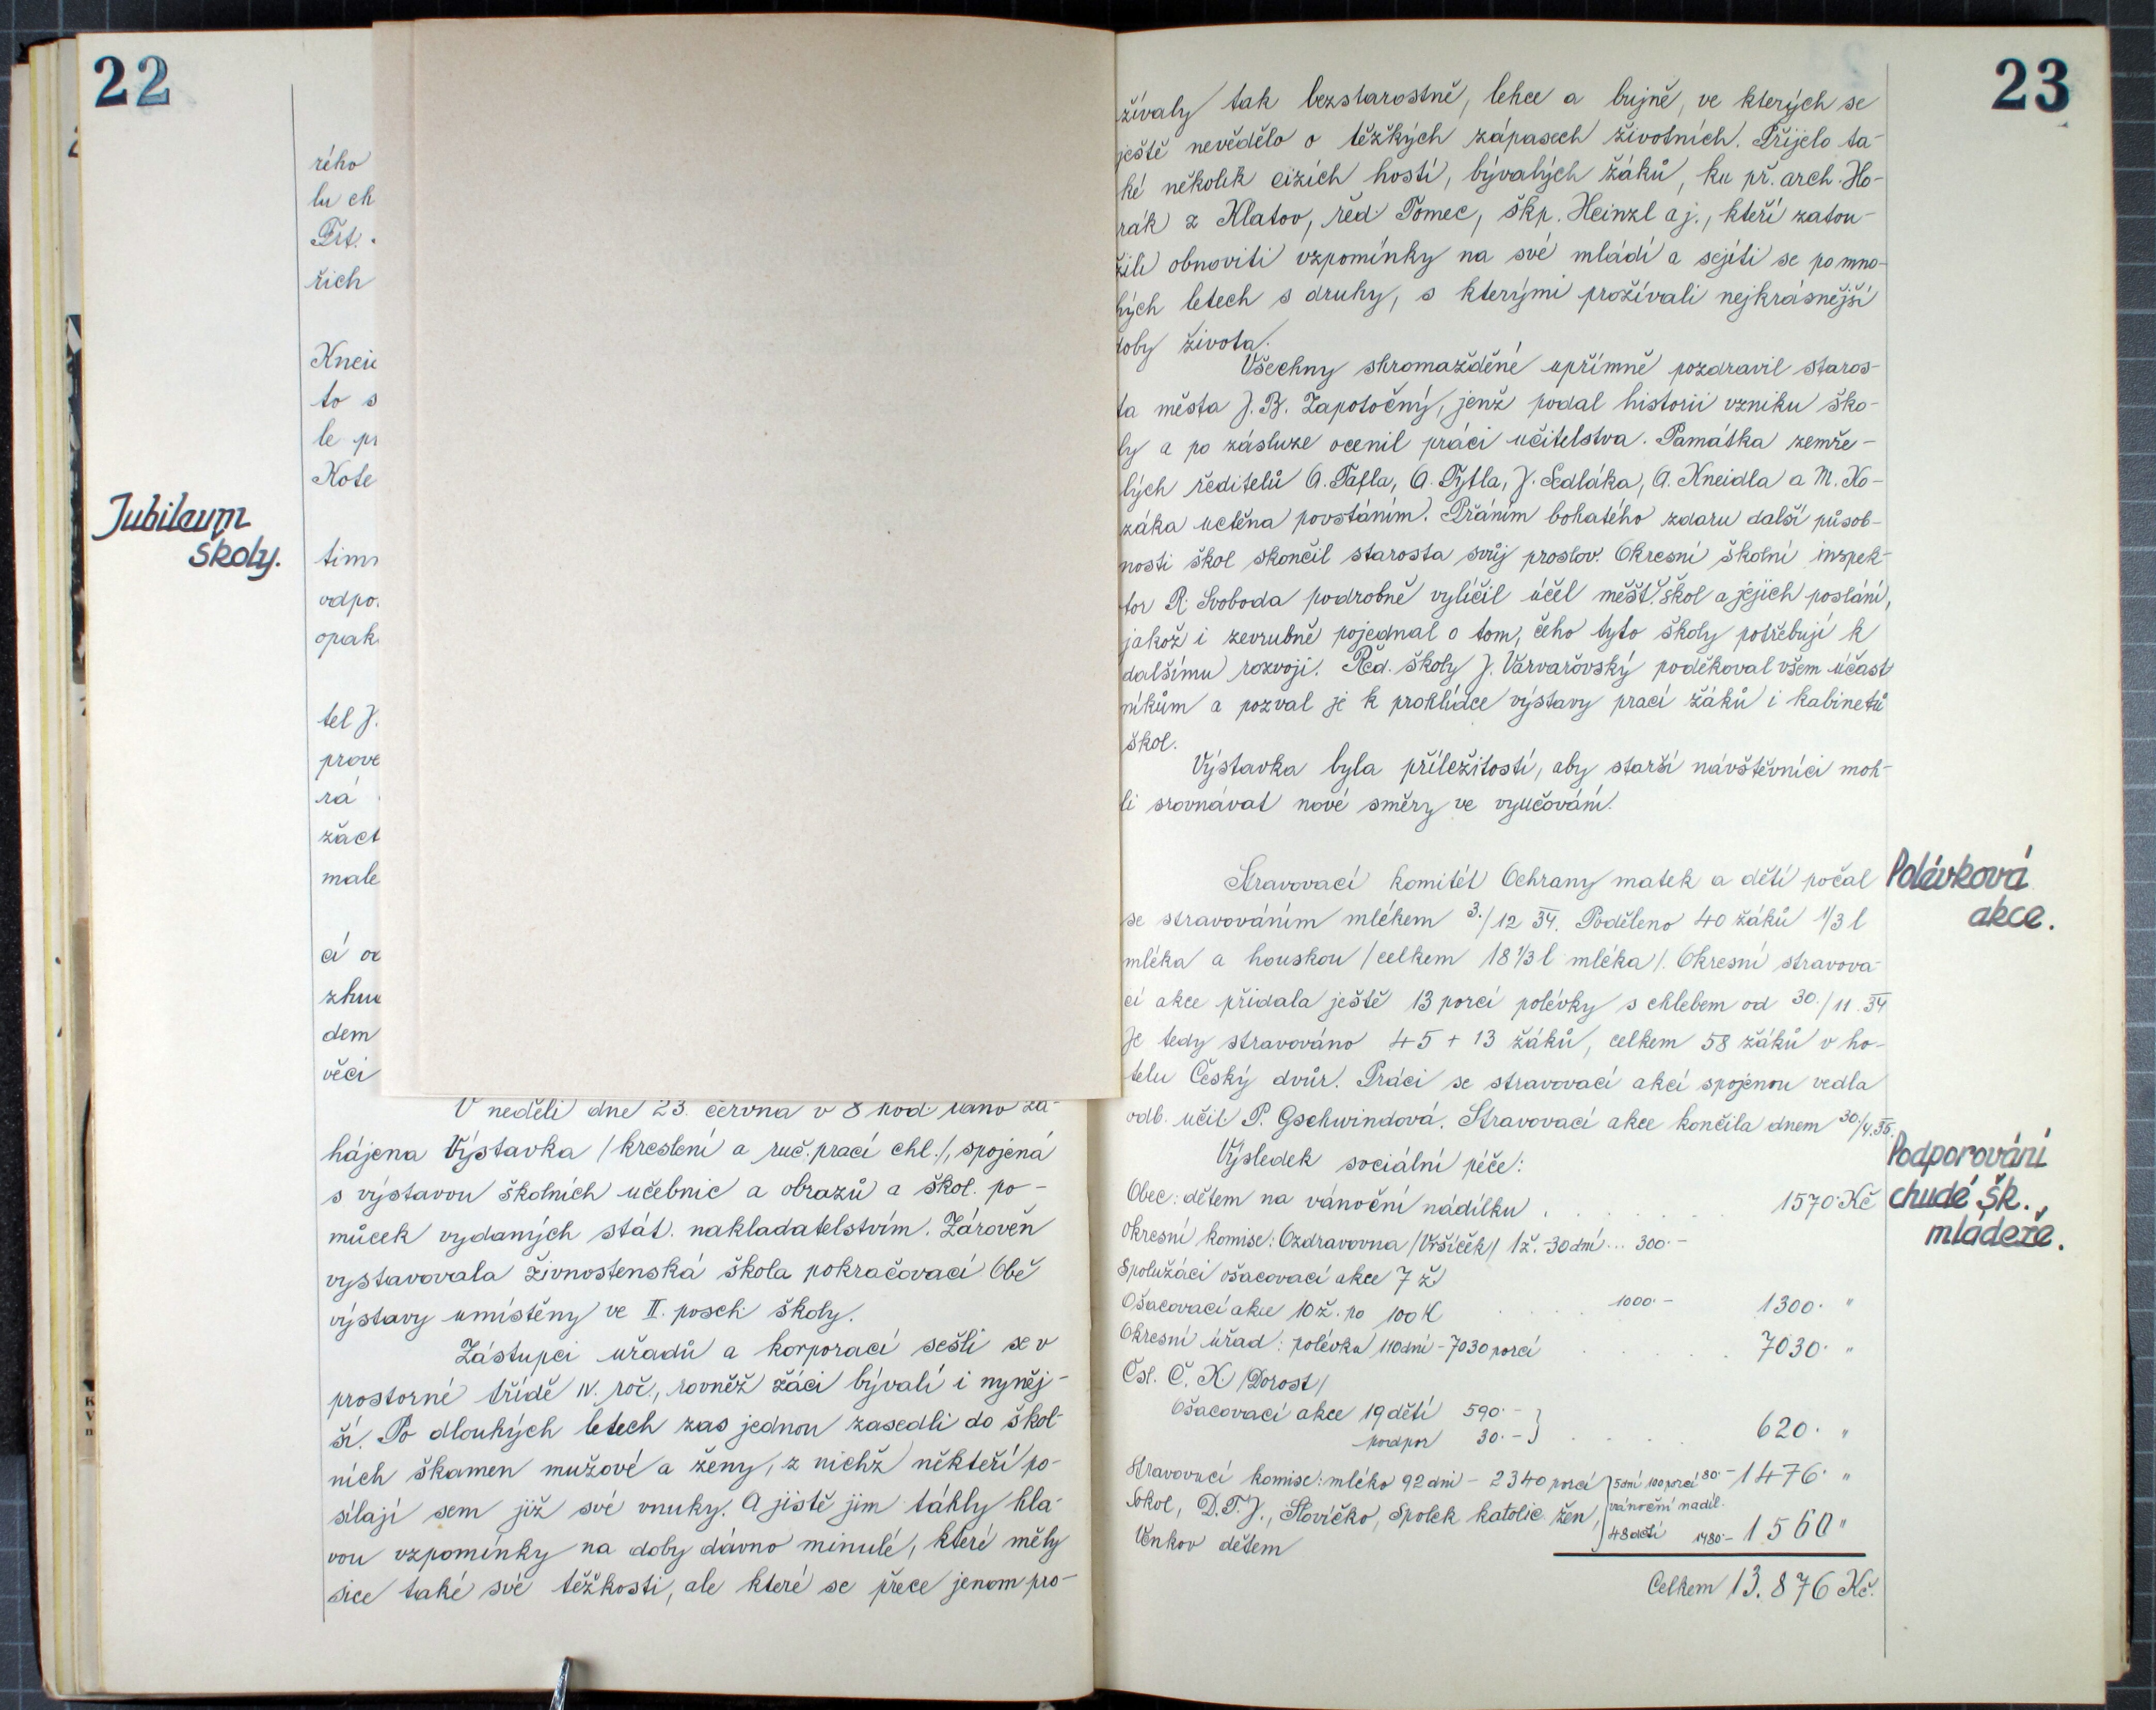 22
rého
lu ch
Frt.
řich
Knei
to s
le pr
Kote
Jubileum
školy.
tim
odpo
opak
tel J.
prove
rá
žact
male
cí oc
zhu
dem
věci
V neděli dne 23. června v 8 hod. ráno za-
hájena Výstavka /kreslení a ruč. prací chl./, spojená
s výstavou školních učebnic a obrazů a škol. po-
můcek vydaných stát. nakladatelstvím. Zároveň
vystavovala živnostenská škola pokračovací Obě
výstavy umístěny ve II. posch. školy.
Zástupci uřadů a korporací sešli se v
prostorné třídě IV. roč., rovněž žáci bývalí i nyněj-
ší. Po dlouhých letech zas jednou zasedli do škol-
ních škamen mužové a ženy, z nichž někteří po-
sílají sem již své vnuky. A jistě jim táhly hla-
vou vzpomínky na doby dávno minulé, které měly
sice také své těžkosti, ale které se přece jenom pro-
23
žívaly tak bezstarostně, lehce a bujně, ve kterých se
ještě nevědělo o těžkých zápasech životních. Přijelo ta-
ké několik cizích hostí, bývalých žáků, ku př. arch. Ho-
rák z Klatov, řed. Tomec, škp. Heinzl a j., kteří zatou-
žili obnoviti vzpomínky na své mládí a sejíti se po mno-
hých letech s druhy, s kterými prožívali nejkrásnější
doby života.
Všechny shromažděné upřímně pozdravil staros-
ta města J. B. Zapotočný, jenž podal historii vzniku ško-
ly a po zásluze ocenil práci učitelstva. Památka zemře-
lých ředitelů A. Tafla, A. Tytla, J. Sedláka, A. Kneidla a M. Ko-
záka uctěna povstáním. Přáním bohatého zdaru další působ-
nosti škol skončil starosta svůj proslov. Okresní školní inspek-
tor R. Svoboda podrobně vylíčil účel měšť. škol a jejich poslání,
jakož i zevrubně pojednal o tom, čeho tyto školy potřebují k
dalšímu rozvoji. Řed. školy J. Varvařovský poděkoval všem účast
níkům a pozval je k prohlídce výstavy prací žáků i kabinetů
škol.
Výstavka byla příležitostí, aby starší návštěvníci moh-
li srovnávat nové směry ve vyučování.
Polévková
akce.
Stravovací komitét Ochrany matek a dětí počal
se stravováním mlékem 3./12 34. Poděleno 40 žáků 1/3 l
mléka a houskou /celkem 18 1/3 l mléka/. Okresní stravova-
cí akce přidala ještě 13 porcí polévky s chlebem od 30./11. 34
Je tedy stravováno 45 + 13 žáků, celkem 58 žáků v ho-
telu Český dvůr. Práci se stravovací akcí spojenou vedla
odb. učit P. Gschwindová. Stravovací akce končila dnem 30./4.35.
Podporování
chudé šk.,
mládeže.
Výsledek sociální péče:
Obec: dětem na vánoční nádílku . . . . . 1570·Kč
Okresní komise: Ozdravovna /Vršíček/ 1ž.-30dní ... 300·-
Spolužáci ošacovací akce 7 ž.
Ošacovací akce 10ž. po 100 K . . . . 1000·- 1300· "
Okresní úřad: polévka 110dní - 7030 porcí . . . . 7030· "
Čsl. Č. K. /Dorost/
Ošacovací akce 19 dětí 590·-
podpor 30.- } . . . . 620· "
Stravovací komise: mléko 92 dní - 2340 porcí } 5dní 100 porcí 80·- 1476· "
Sokol, D.T.J., Slovíčko, Spolek katolic. žen, vánoční nadíl.
Venkov dětem 48 dětí 1480·- 1560 "
Celkem 13.876 Kč.